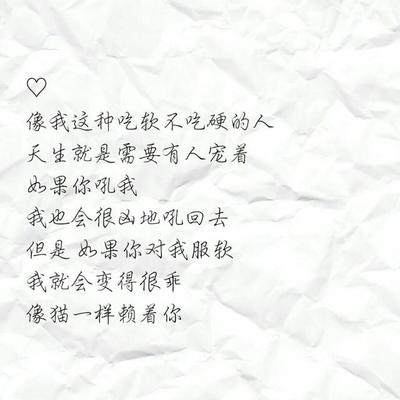 ♡
像我这种吃软不吃硬的人
天生就是需要有人宠着
如果你吼我
我也会很凶地吼回去
但是 如果你对我服软
我就会变得很乖
像猫一样赖着你